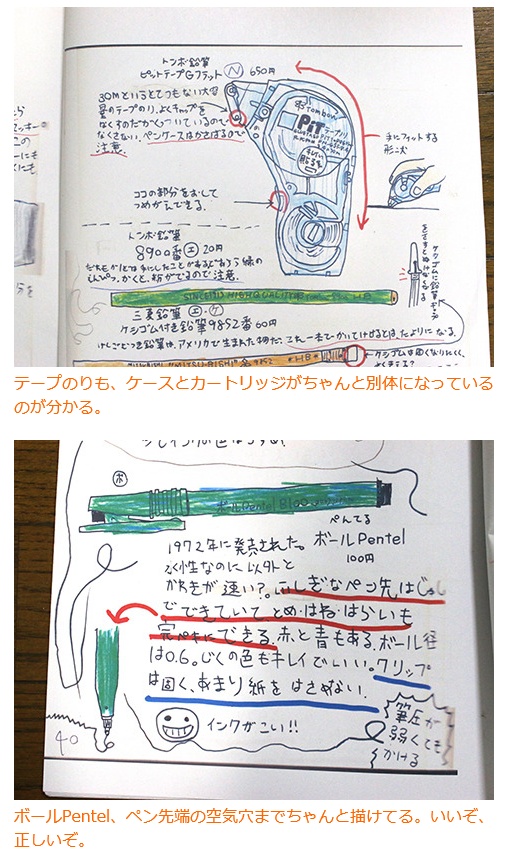 トンボ鉛筆
ピットテープGフラット N 650円
30Mというとてつもない大容
量のテープのり。よくキャップを
なくすのだがくっついているので
なくさない。ペンケースはかさばるので
注意。
Tombow
PiT
テープのり
手にフィットする
形状
ココの部分をおして
つめかえできる。
トンボ鉛筆
8900番 エ 20円
だれもが1どは手にしたことがあるであろう緑の
えんぴつ。かくと、粉がでるので注意。
HIGH QUALITY HB
三菱鉛筆 エ・ケ
ケシゴム付き鉛筆9852番 60円
けしごむつき鉛筆は、アメリカで生まれた物だ。これ一本でかいてけせるとは、たよりになる。
9852 HB
ケシゴムは固くなりにくく、
よくきえる?
テープのりも、ケースとカートリッジがちゃんと別体になっている
のが分かる。
ボ
ボールPentel B100
ぺんてる
1972年に発売された。ボールPentel
100円
水性なのに以外と
かわきが速い?。ふしぎなペン先はじゅし
でできていて、とめ・はね・はらいも
完ペキにできる。赤と青もある。ボール径
は0.6。じくの色もキレイでいい。クリップ
は固く、あまり紙をはさめない。
インクがこい!!
筆圧が
弱くても
かける
40
ボールPentel、ペン先端の空気穴までちゃんと描けてる。いいぞ、
正しいぞ。